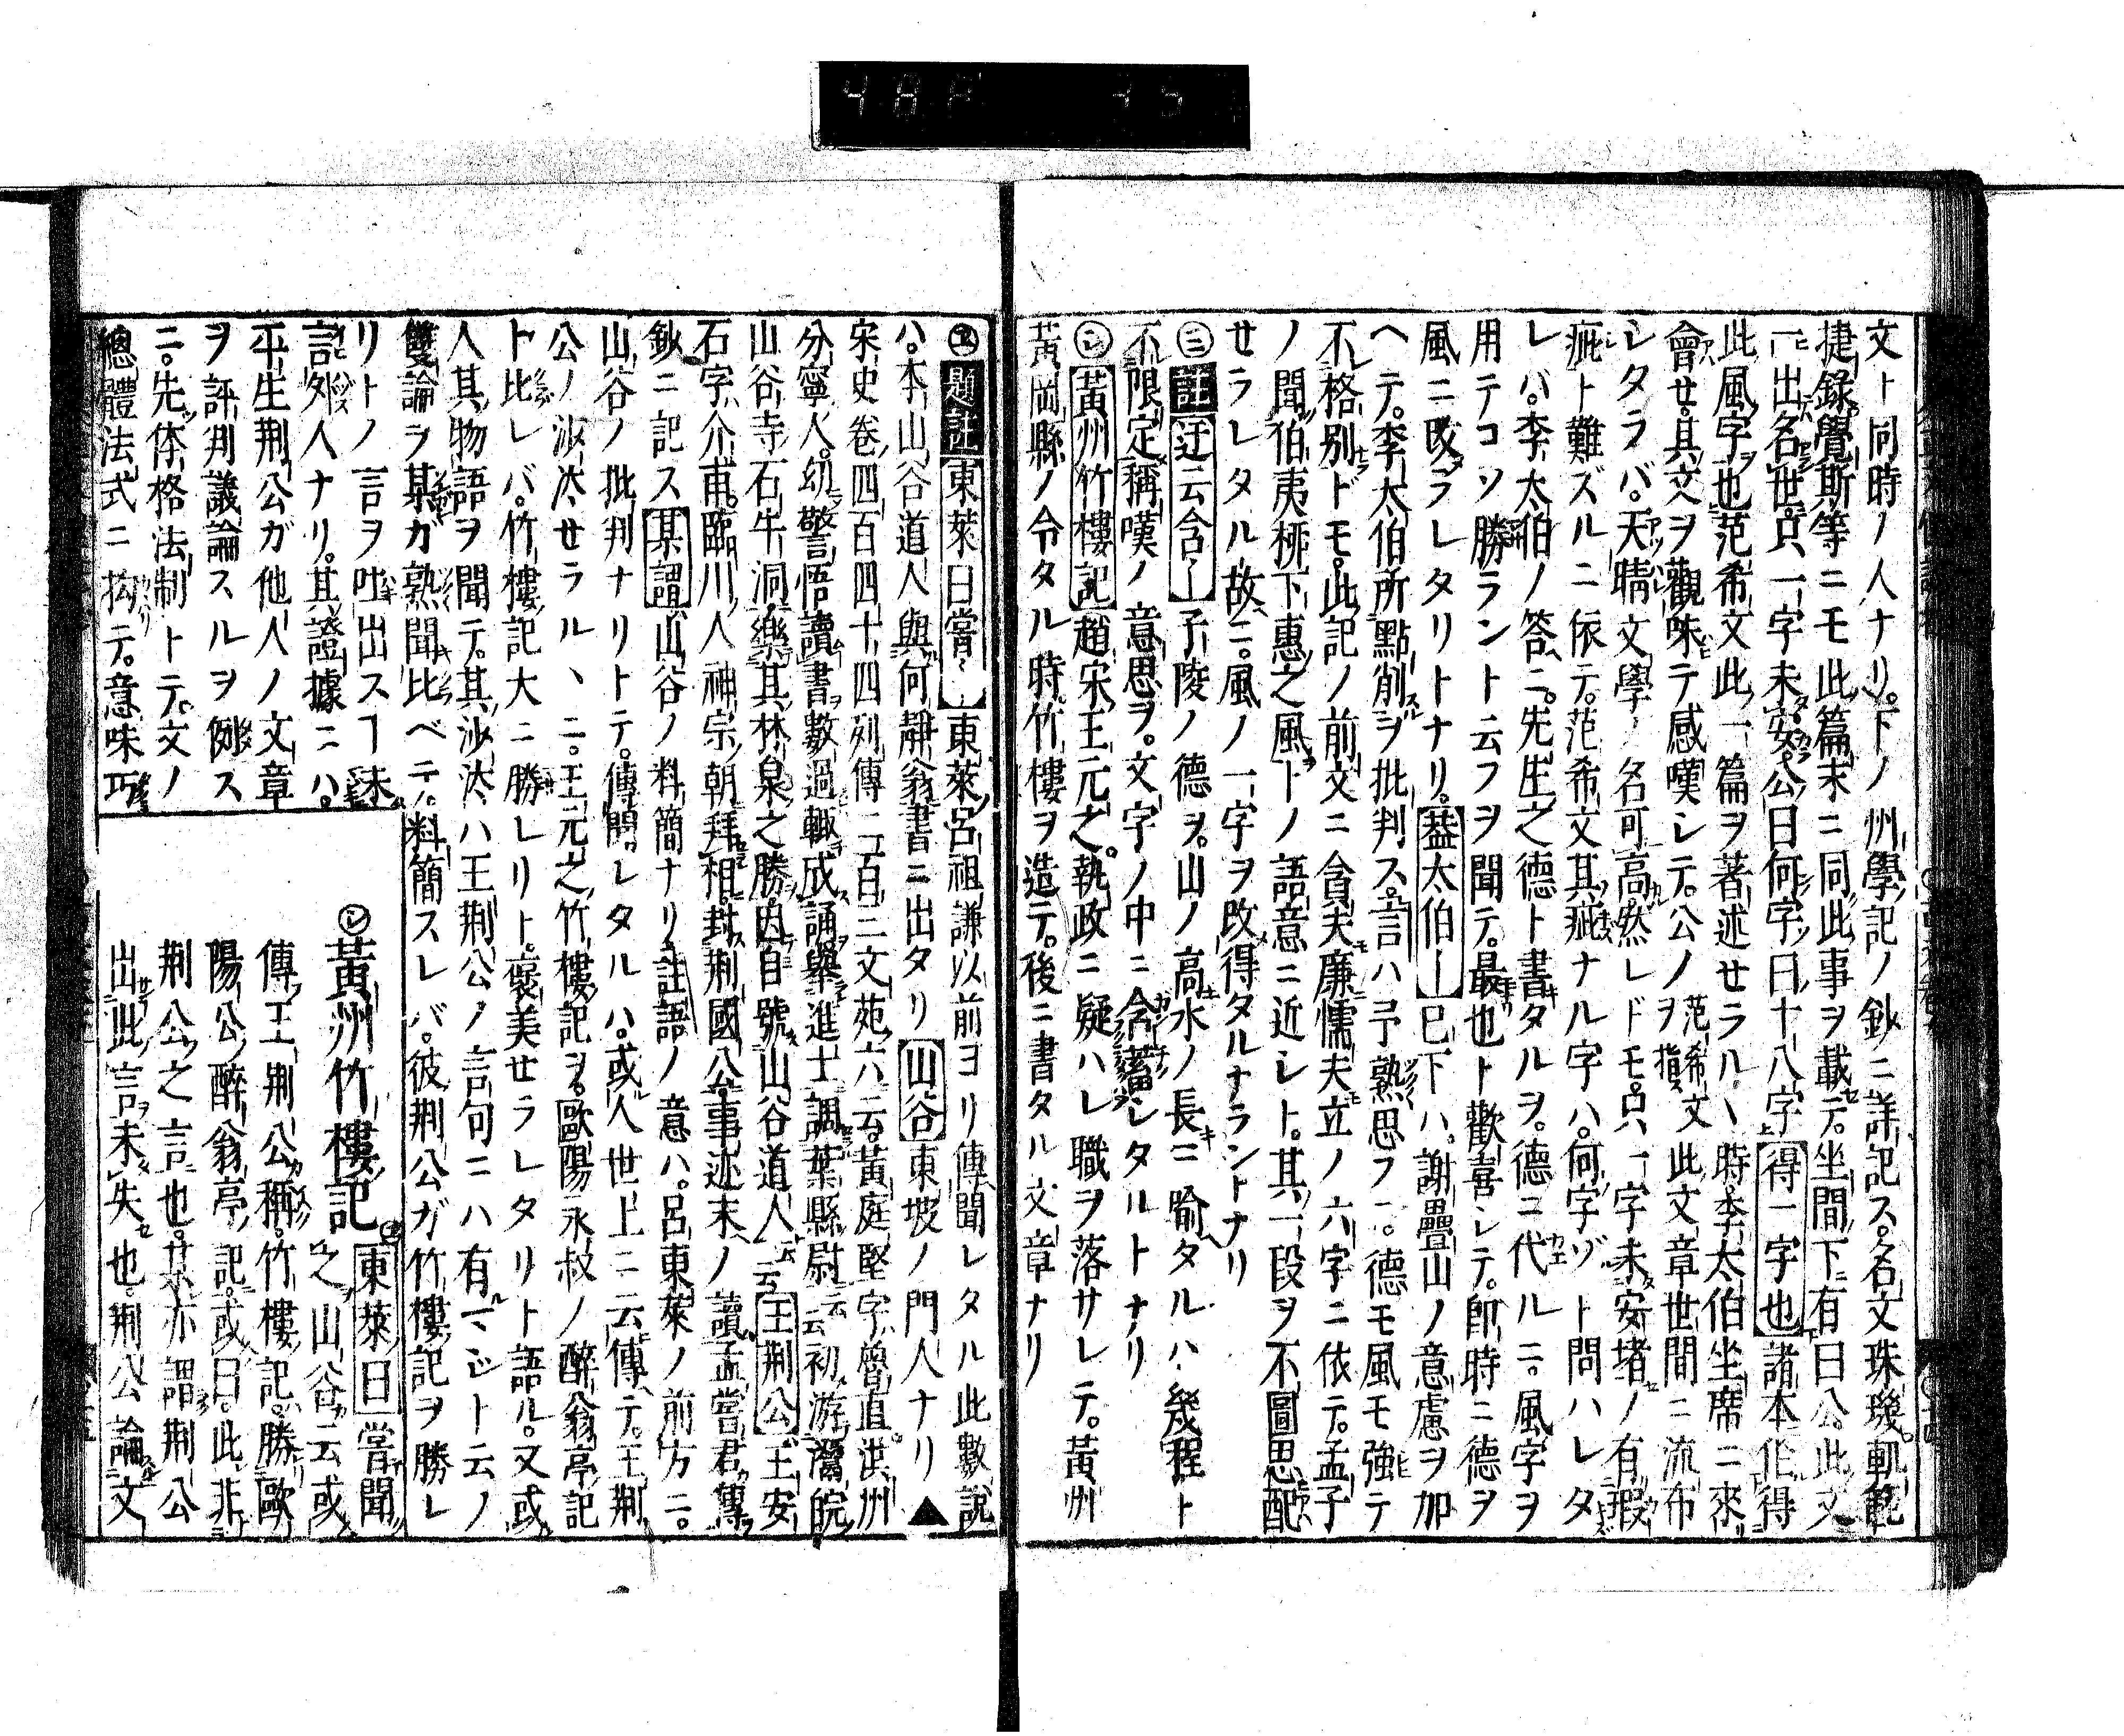 文ト同時ノ人ナリ。下ノ州學記ノ鈔ニ詳記ス。名文珠璣。軌範
捷錄覺斯等ニモ此篇末ニ同此事ヲ載テ。坐間下有曰公。此文
一出名世。只一字未安。公曰何字。曰十八字得一字也諸本作得
此風字也范希文此一篇ヲ著述セラルヽ時。李太伯坐席ニ來
會セ。其文ヲ觀味テ感嘆シテ。公ノ范希文ヲ指此文章世間ニ流布
シタラバ。天晴文學ノ名可高。然レドモ。只一字未安堵ノ有瑕
疵ト難ズルニ依テ。范希文其疵ナル字ハ。何字ゾト問ハレタ
レバ。李太伯ノ答ニ。先生之德ト書タルヲ。德ニ代ルニ。風字ヲ
用テコソ勝ラント云フヲ聞テ。最也ト歡喜シテ。即時ニ德ヲ
風ニ改ラレタリトナリ。蓋太伯─已下ハ。謝疊山ノ意慮ヲ加
ヘテ。李太伯所點削ヲ批判ス。言ハ予熟思フニ。德モ風モ強テ
不格別ドモ。此記ノ前文ニ貪夫廉懦夫立ノ六字ニ依テ。孟子
ノ聞伯夷栁下惠之風トノ語意ニ近シト。其一段ヲ不圖思配
セラレタル故ニ。風ノ一字ヲ改得タルナラントナリ
㊂註迂云含─子陵ノ德ヲ。山ノ高水ノ長ニ喻タルハ幾程ト
不限定稱嘆ノ意思ヲ。文字ノ中ニ含蓄シタルトナリ
黃州竹樓記趙宋王元之。執政ニ疑ハレ職ヲ落サレテ。黃州
黃岡縣ノ令タル時竹樓ヲ造テ。後ニ書タル文章ナリ
題註東萊曰嘗─東萊呂祖謙以前ヨリ傳聞シタル此數說
ハ。本山谷道人與何靜翁書ニ出タリ山谷東坡ノ門人ナリ▲
宋史卷四百四十四列傳二百三文苑六云。黃庭堅字魯直。洪州
分寧人。幼警悟讀書數過輒成誦擧進士調葉縣尉云云初游灊皖
山谷寺石牛洞。樂其林泉之勝。因自號山谷道人云云王荆公王安
石字介甫。臨川人神宗朝拜相。封荆國公。事迹末ノ讀孟嘗君傳
鈔ニ記ス某謂山谷ノ料簡ナリ註語ノ意ハ。呂東萊ノ前方ニ。
山谷ノ批判ナリトテ。傳聞シタルハ。或人世上ニ云傳テ。王荆
公ノ沙汰セラルヽニ。王元之竹樓記ヲ。歐陽永叔ノ醉翁亭記
ト比レバ。竹樓記大ニ勝レリト。褒美セラレタリト語ル。又或
人其物語ヲ聞テ。其沙汰ハ王荆公ノ言句ニハ有マジト云ノ
雙論ヲ某カ熟聞比ベテ。料簡スレバ。彼荆公ガ竹樓記ヲ勝レ
リトノ言ヲ吐出スヿ未
言外人ナリ。其證據ニハ。
平生荆公ガ他人ノ文章
ヲ評判議論スルヲ例ス
ニ。先体格法制トテ。文ノ
總體法式ニ拘テ。意味巧
黃州竹樓記東萊曰嘗聞
之山谷云或
傳王荆公稱。竹樓記。勝歐
陽公醉翁亭記。或曰。此非
荆公之言也。某亦謂荆公
出此言未失也。荆公論文